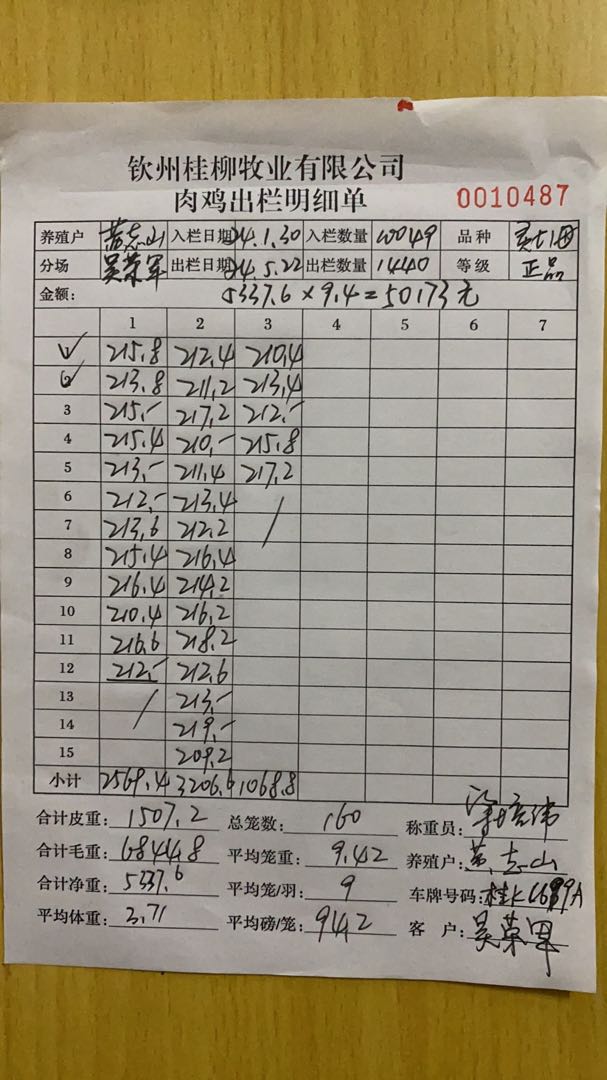 钦州桂柳牧业有限公司
肉鸡出栏明细单 0010487
养殖户 黄志山 入栏日期 24.1.30 入栏数量 10049 品种
分场 吴荣军 出栏日期 24.5.22 出栏数量 1440 等级 正品
金额: 5337.6×9.4=50173元
1 2 3 4 5 6 7
215.8 212.4 210.4
213.8 211.2 213.4
3 215.- 217.2 212.-
4 215.4 210.- 215.8
5 213.- 211.4 217.2
6 212.- 213.4
7 213.6 212.2
8 215.4 216.4
9 216.4 214.2
10 210.4 216.2
11 216.6 218.2
12 212.- 212.6
13 213.-
14 219.-
15 209.2
小计 2569.4 3206.6 1068.8
合计皮重: 1507.2 总笼数: 160 称重员:
合计毛重: 6844.8 平均笼重: 9.42 养殖户: 黄志山
合计净重: 5337.6 平均笼/羽: 9 车牌号码:
平均体重: 3.71 平均磅/笼: 94.2 客户: